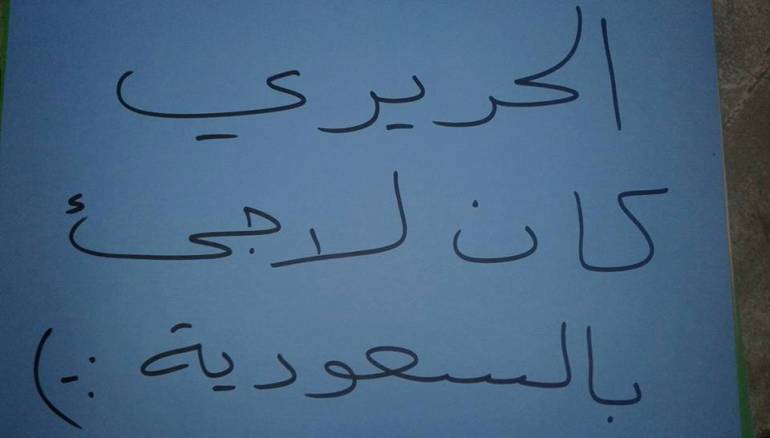 الحريري
كان لاجئ
بالسعودية :-)